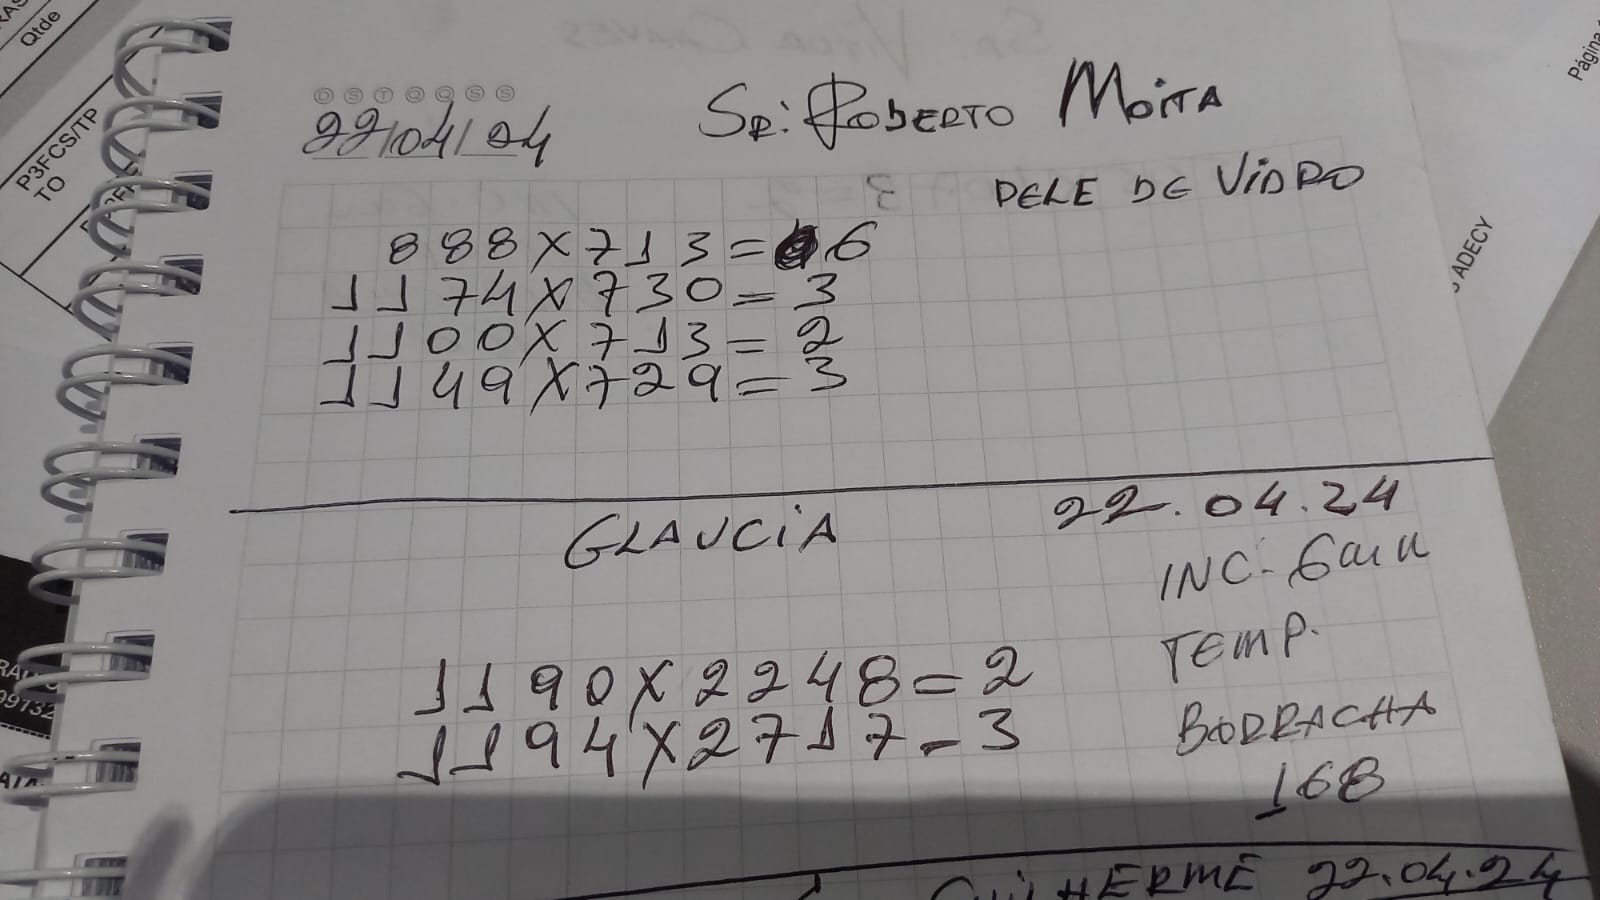 Qtde
P3FCS/TP
TO
D S T Q Q S S
22/04/24
Sr: Roberto Moita
PELE DE VIDRO
888X713=6
1174X730=3
1100X713=2
1149X729=3
GLAUCIA
22.04.24
INC. 6mm
TEMP.
BORRACHA
168
1190X2248=2
1194X2717=3
GUILHERME 22.04.24
Página
ADECY